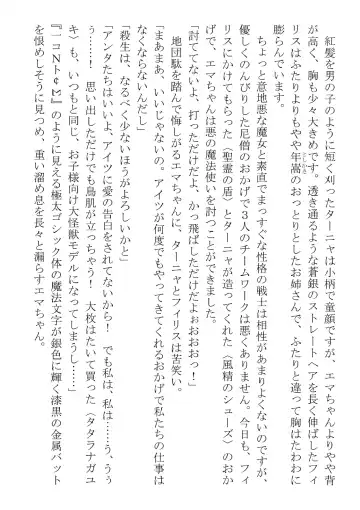 紅髪を男の子のように短く刈ったターニャは小柄で童顔ですが、エマちゃんよりやや背
が高く、胸も少々大きめです。透き通るような蒼銀のストレートヘアを長く伸ばしたフィ
リスはふたりよりもやや年嵩のおっとりとしたお姉さんで、ふたりと違って胸はたわわに
膨らんでいます。
ちょっと意地悪な魔女と素直でまっすぐな性格の戦士は相性があまりよくないのですが、
優しくのんびりした尼僧のおかげで３人のチームワークは悪くありません。今日も、フィ
リスにかけてもらった〈聖霊の盾〉とターニャが造ってくれた〈風精のシューズ〉のおか
げで、エマちゃんは悪の魔法使いを討つことができました。
「討ててないよ、打っただけだよ、かっ飛ばしただけだよぉおおお！」
地団駄を踏んで悔しがるエマちゃんに、ターニャとフィリスは苦笑い。
「まあまあ、いいじゃないの。アイツが何度でもやってきてくれるおかげで私たちの仕事は
なくならないんだし」
「殺生は、なるべく少ないほうがよろしいかと」
「アンタたちはいいよ、アイツに愛の告白をされてないから！　でも私は、私は……う、うぅ
ぅ……！　思い出しただけでも鳥肌が立っちゃう！　大枚はたいて買った〈タタラナガユ
キ〉も、いつもと同じ、お子様向け大怪獣モデルになってしまうし……」
のように見える極太ゴシック体の魔法文字が銀色に輝く漆黒の金属バット
を恨めしそうに見つめ、重い溜め息を長々と漏らすエマちゃん。